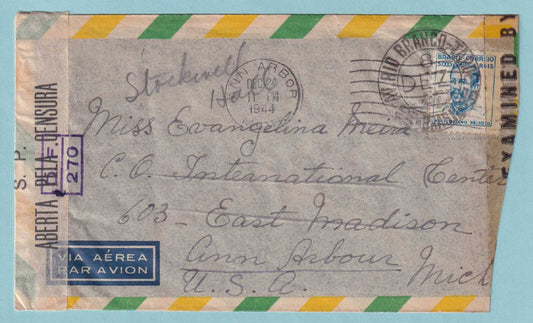 S. P.
ABERTA PELA CENSURA
D. F.
270
EXAMINED BY
ANN ARBOR
DEC 20
11 PM
1944
RIO BRANCO
BRASIL CORREIO
Stockwell
Hall
Miss Evangelina Meira
C.O. International Center
603 - East Madison
Ann Arbour Mich
U.S.A.
VIA AÉREA
PAR AVION